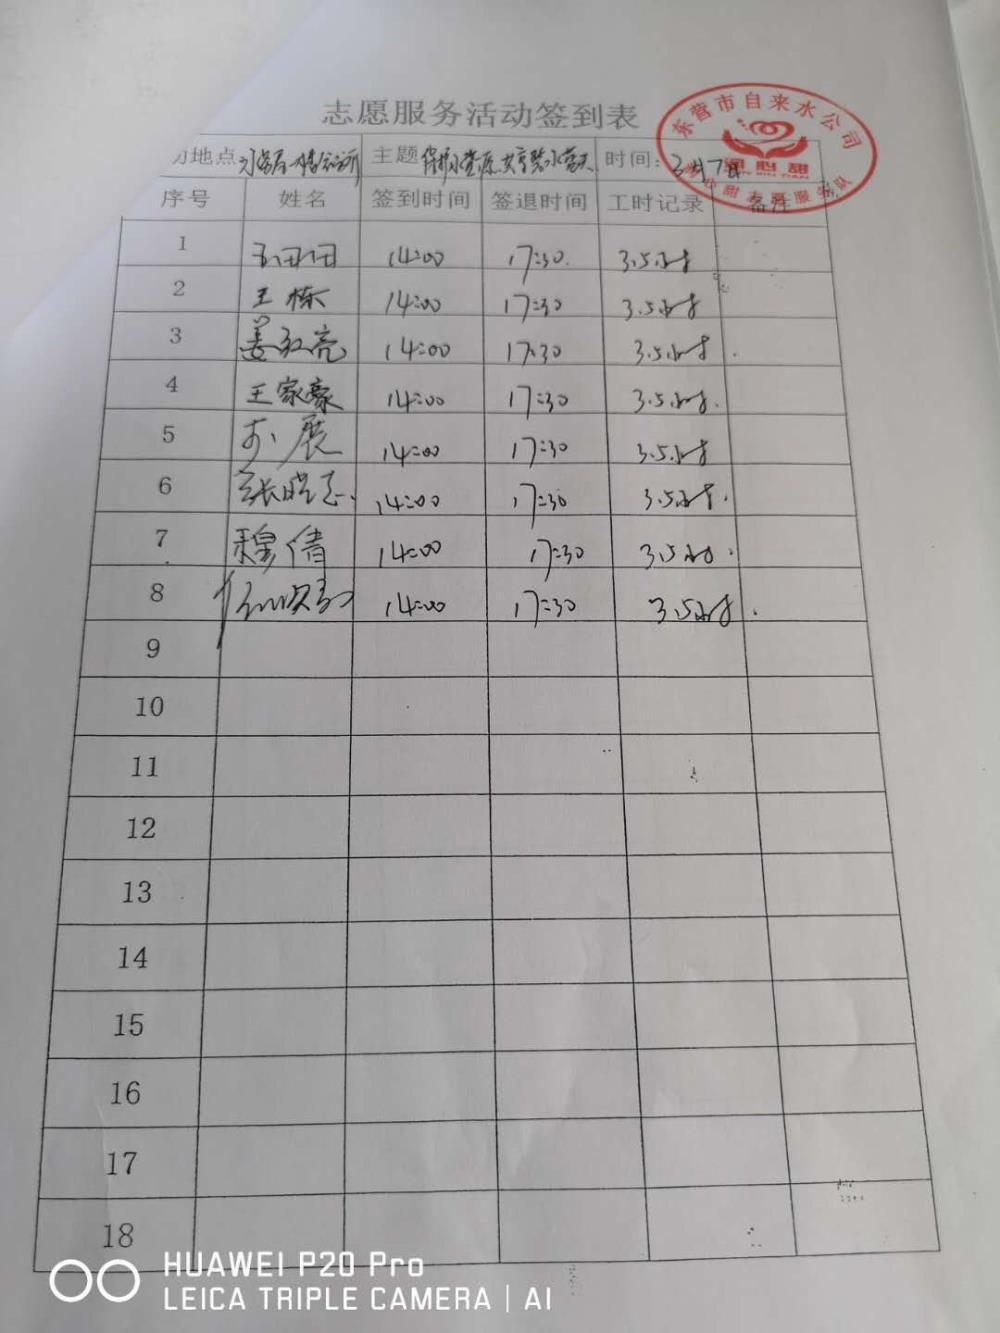 志愿服务活动签到表
东营市自来水公司
心甜志愿服务队
动地点 主题 保护水资源 共享碧水蓝天 时间：3月7日
序号 姓名 签到时间 签退时间 工时记录 备注
1 14:00 17:30 3.5小时
2 王栋 14:00 17:30 3.5小时
3 姜红亮 14:00 17:30 3.5小时
4 王家豪 14:00 17:30 3.5小时
5 展 14:00 17:30 3.5小时
6 张晓 14:00 17:30 3.5小时
7 穆倩 14:00 17:30 3.5小时
8 14:00 17:30 3.5小时
9
10
11
12
13
14
15
16
17
18
HUAWEI P20 Pro
LEICA TRIPLE CAMERA | AI